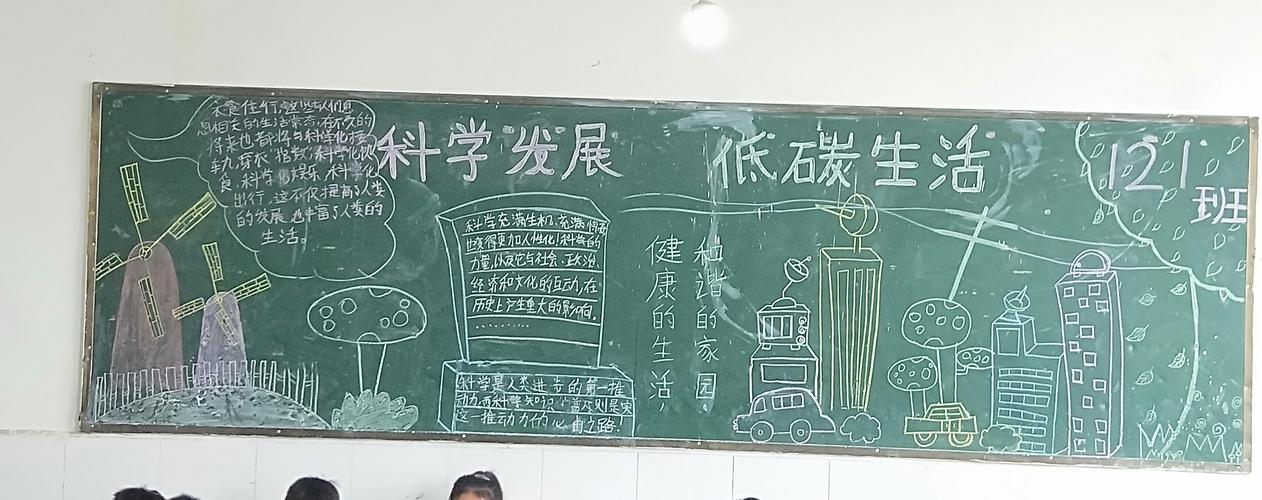 衣食住行,这些与人们息
息相关的生活常态,在不久的
将来也都将与科学化接
轨,穿衣 科学化饮
食,科学化娱乐,科学化
出行,这不仅提高了人类
的发展,也丰富了人类的
生活。
科学发展 低碳生活
121
班
科学充满生机,充满
世变得更加人性化!科技的
力量,以及它与社会、政治、
经济和文化的互动,在
历史上产生重大的影响。
…………
科学是人类进步的第一推
动力,而科学知识 普及则是实
这一推动力的必由之路!
和谐的家园,
健康的生活,